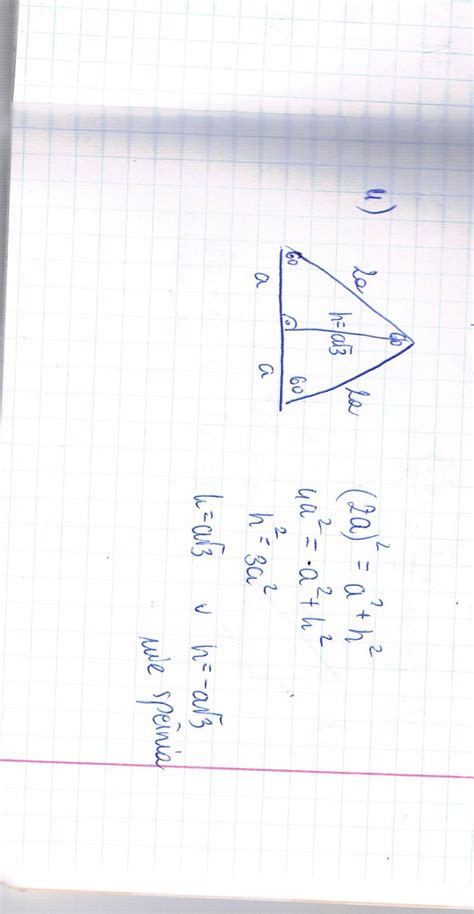 4)
2a
2a
h=a√3
60
60
a
a
(2a)² = a² + h²
4a² = a² + h²
h² = 3a²
h=a√3 ∨ h=-a√3
nie spełnia